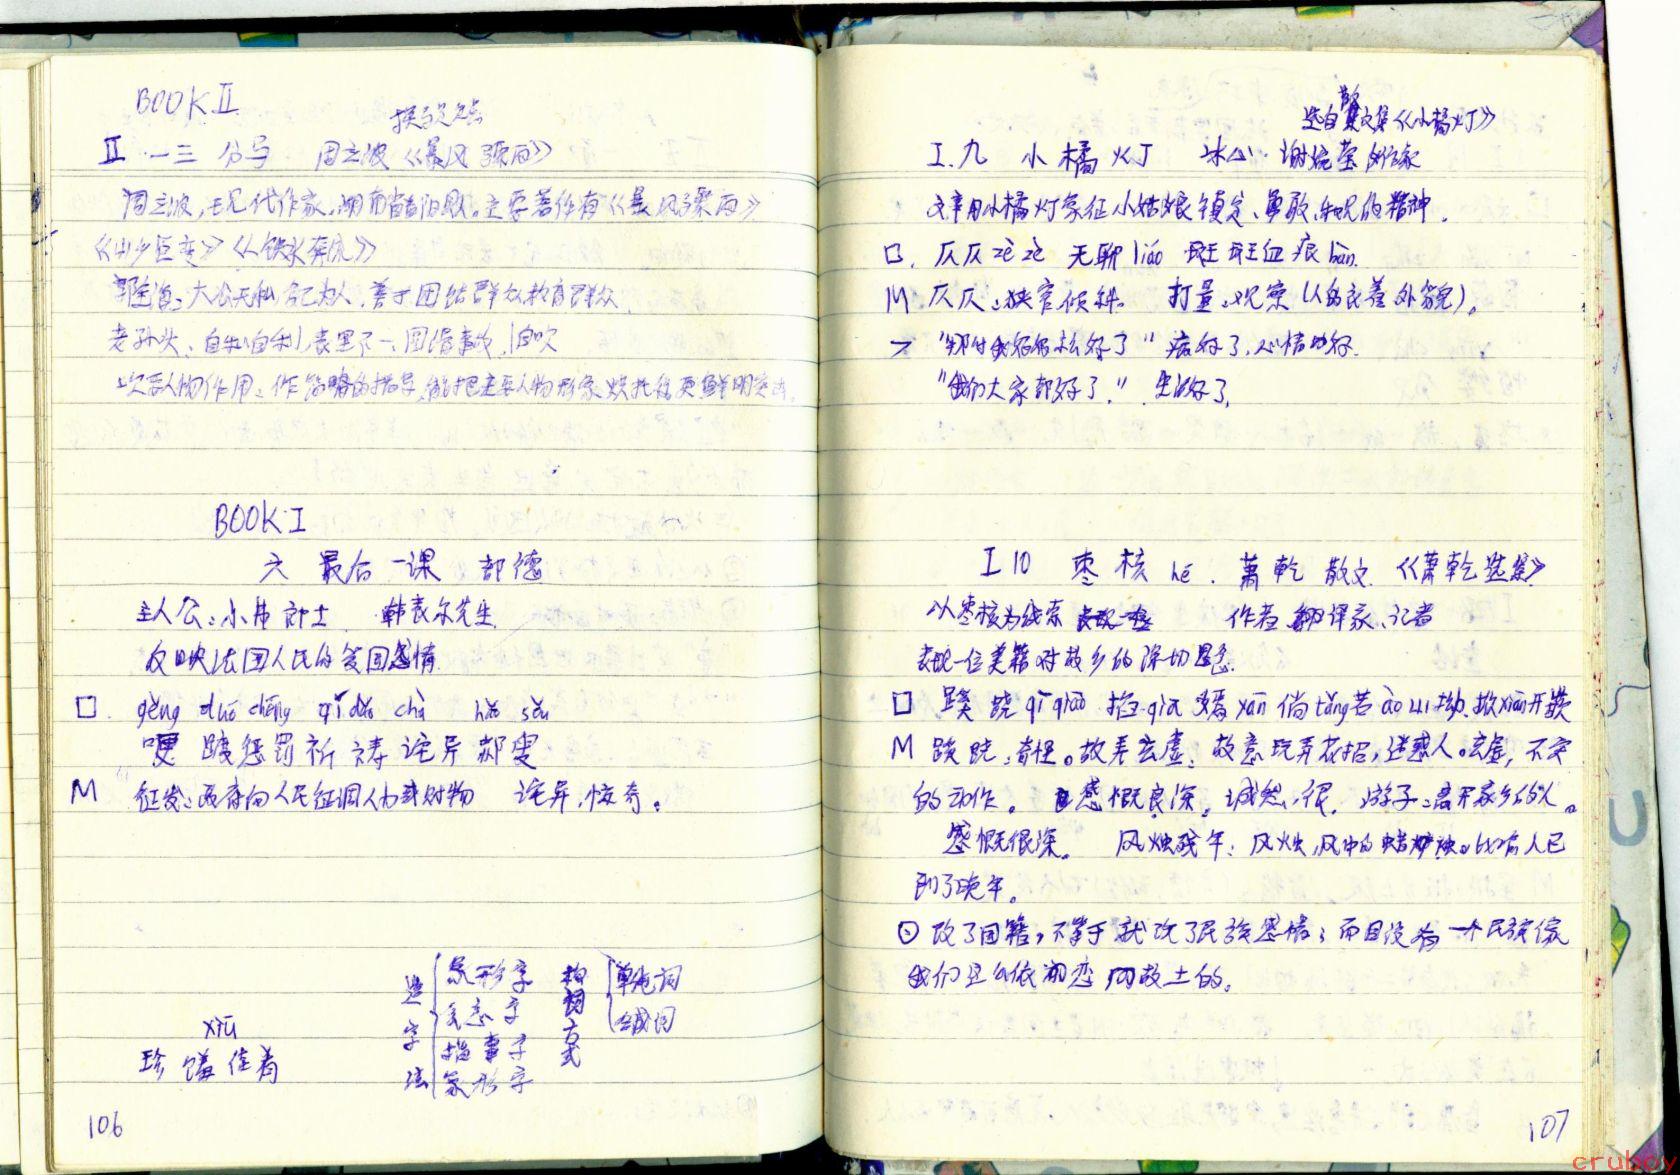 BOOK Ⅱ
Ⅱ 一三 分马 周立波《暴风骤雨》
周立波,现代作家,湖南省益阳县。主要著作有《暴风骤雨》
《山乡巨变》《铁水奔流》
郭全海:大公无私 舍己为人,善于团结群众教育群众
老孙头:自私自利,表里不一、圆滑事故,自吹
次要人物作用:作 的描写,能把主要人物形象烘托得更鲜明突出
BOOK I
六 最后一课 都德
主人公:小弗郎士 韩麦尔先生
反映法国人民的爱国感情
□ gěng duó chěng qí dǎo chà hǎo sǒu
哽 踱 惩罚 祈祷 诧异 郝叟
M 征发:政府向人民征调人力或财物 诧异,惊奇。
造字法 象形字 会意字 指事字 象形字
构词方式 单纯词 合成词
xiū
珍馐佳肴
106
选自散文集《小橘灯》
I.九 小橘灯 冰心 谢婉莹 作家
文章用小橘灯象征小姑娘镇定、勇敢、乐观的精神.
口. 仄仄 zè zè 无聊 liáo 斑斑血痕 bān
M 仄仄:狭窄倾斜。 打量:观察(人的衣着外貌)。
"那时我爸爸就好了" 病好了,心情也好.
"我们大家都好了." 生活好了,
I 10 枣核 hé. 萧乾 散文 《萧乾选集》
以枣核为线索 作者 翻译家、记者
表现一位美籍对故乡的深切思念.
口 蹊跷 qī qiāo 掐 qiā 嫣 yān 倘 tǎng 若 ào 拗. 掀 xiān 开
M 蹊跷:奇怪。故弄玄虚:故意玩弄花招,迷惑人。玄虚,不实
的动作。 感慨良深。诚然:很. 游子:离开家乡的人。
感慨很深。 风烛残年:风烛,风中的蜡烛。比喻人已
到了晚年。
⊙ 改了国籍,不等于就改了民族感情;而且没有一个民族像
我们这么依恋 故土的.
107
crubo